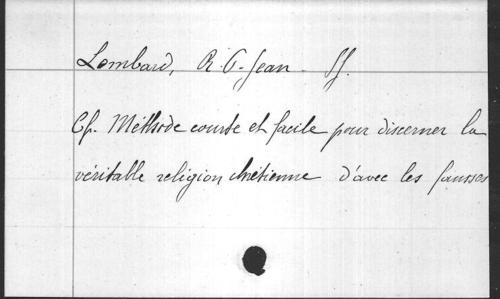 Lombard, R. P. Jean - SJ.
Cf. Méthode courte et facile pour discerner la
véritable religion chrétienne d'avec les fausses